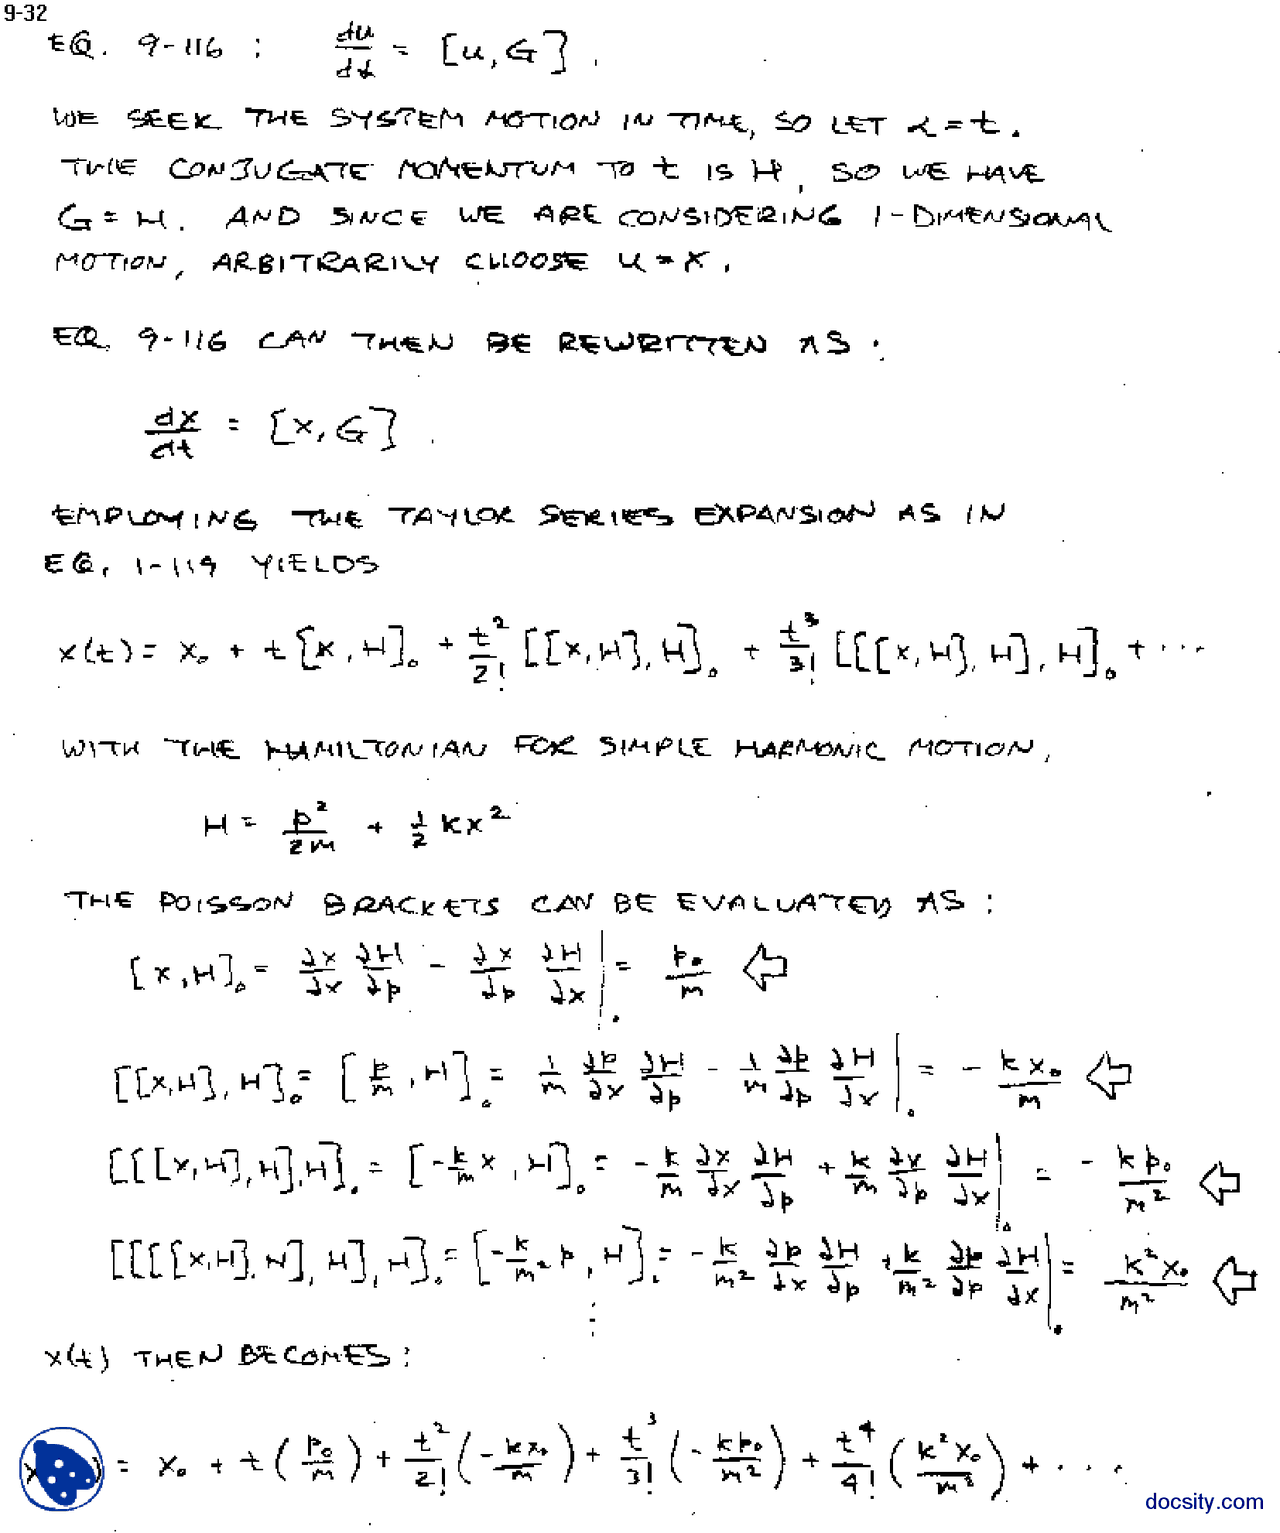 9-32
EQ. 9-116 : du/dα = [u, G] .
WE SEEK THE SYSTEM MOTION IN TIME, SO LET α = t.
THE CONJUGATE MOMENTUM TO t IS H, SO WE HAVE
G = H. AND SINCE WE ARE CONSIDERING 1-DIMENSIONAL
MOTION, ARBITRARILY CHOOSE u = x.
EQ. 9-116 CAN THEN BE REWRITTEN AS:
dx/dt = [x, G] .
EMPLOYING THE TAYLOR SERIES EXPANSION AS IN
EQ. 1-119 YIELDS
x(t) = x₀ + t [x, H]₀ + t²/2! [[x, H], H]₀ + t³/3! [[[x, H], H], H]₀ + ···
WITH THE HAMILTONIAN FOR SIMPLE HARMONIC MOTION,
H = p²/2m + 1/2 kx²
THE POISSON BRACKETS CAN BE EVALUATED AS:
[x, H]₀ = ∂x/∂x ∂H/∂p - ∂x/∂p ∂H/∂x |₀ = p₀/m ⇦
[[x, H], H]₀ = [p/m, H]₀ = 1/m ∂p/∂x ∂H/∂p - 1/m ∂p/∂p ∂H/∂x |₀ = - kx₀/m ⇦
[[[x, H], H], H]₀ = [-k/m x, H]₀ = - k/m ∂x/∂x ∂H/∂p + k/m ∂x/∂p ∂H/∂x |₀ = - kp₀/m² ⇦
[[[[x, H], H], H], H]₀ = [-k/m² p, H]₀ = - k/m² ∂p/∂x ∂H/∂p + k/m² ∂p/∂p ∂H/∂x |₀ = k²x₀/m² ⇦
⋮
x(t) THEN BECOMES:
= x₀ + t (p₀/m) + t²/2! (- kx₀/m) + t³/3! (- kp₀/m²) + t⁴/4! (k²x₀/m²) + ····
docsity.com